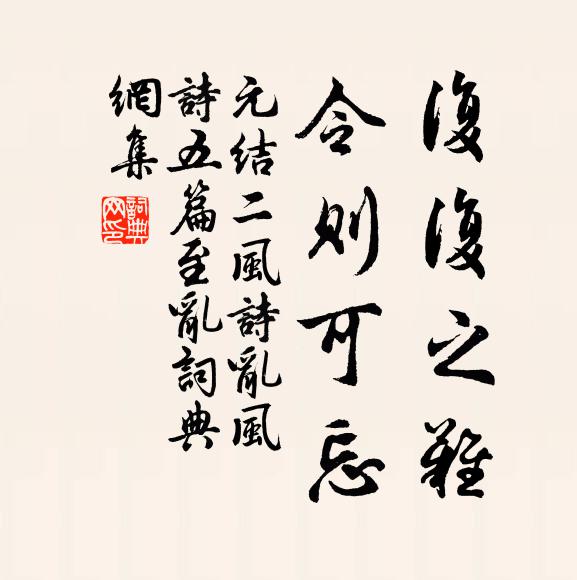 復復之難
令則可忘
元結二風詩亂風
詩五篇至亂詞典
網集
詞典網印